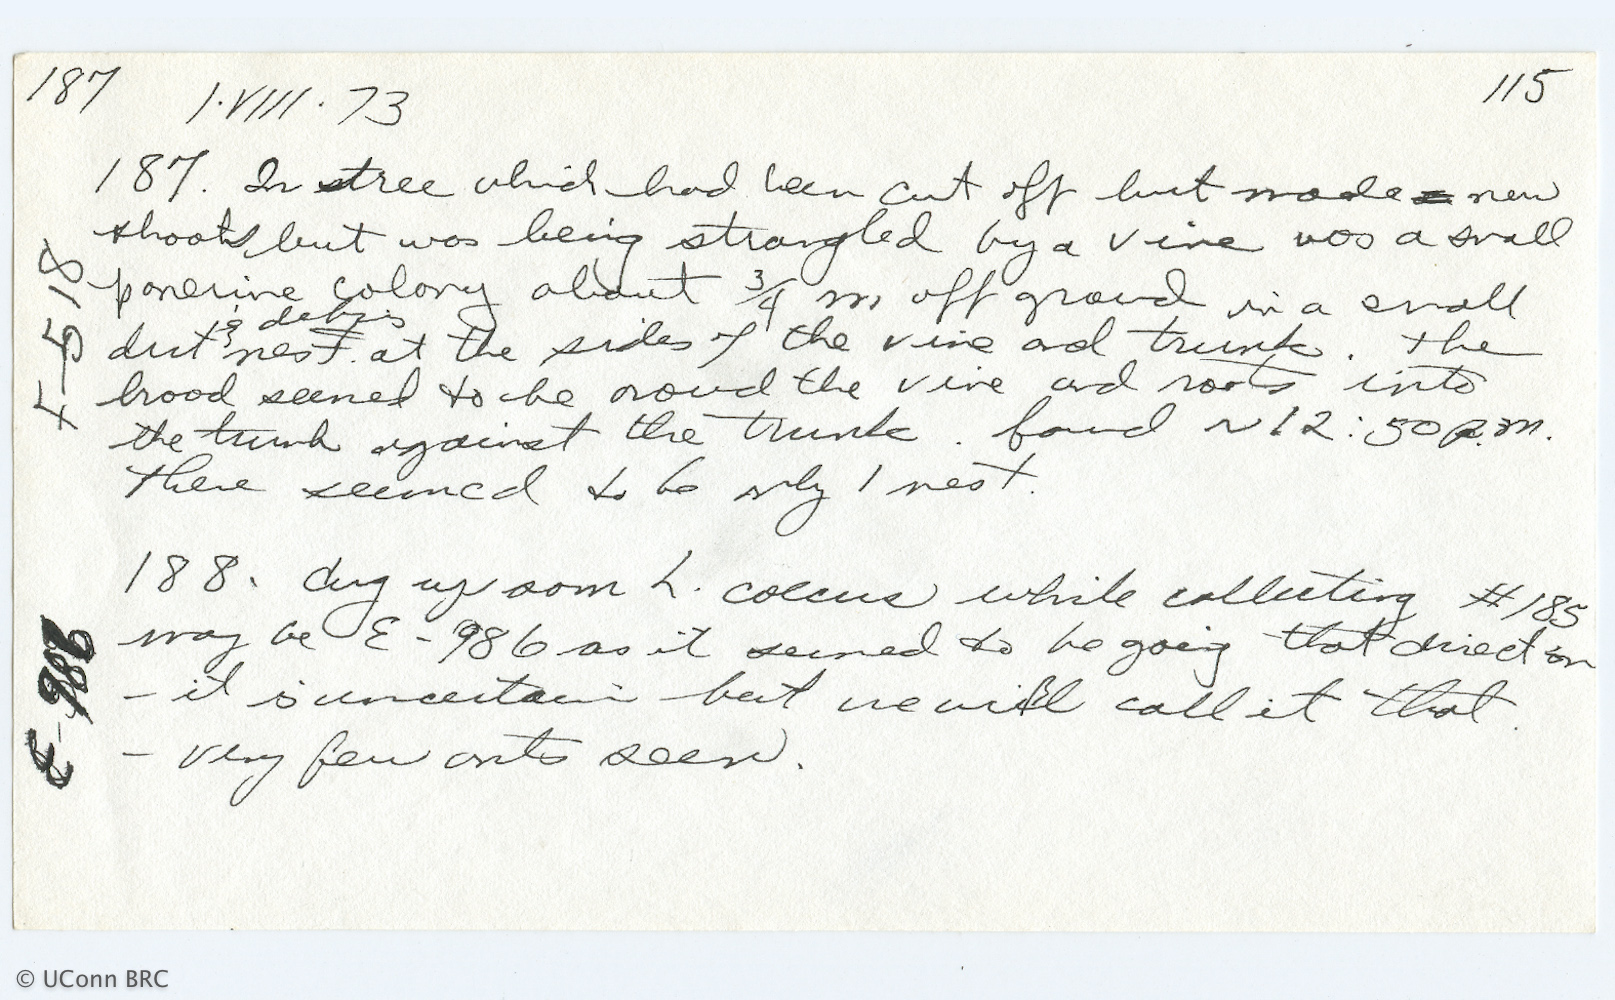 187 1·VIII·73 115
187. In tree which had been cut off but made new
shoots but was being strangled by a vine was a small
ponerine colony about 3/4 m off ground in a small
dirt & debris nest at the sides of the vine and trunk. The
brood seemed to be around the vine and roots into
the trunk against the trunk. found ~12:50 p.m.
There seemed to be only 1 nest.
188. dug up som L. coecus while collecting #185
may be E-986 as it seemed to be going that direction
- it is uncertain but we will call it that.
- very few ants seen.
E-986
© UConn BRC